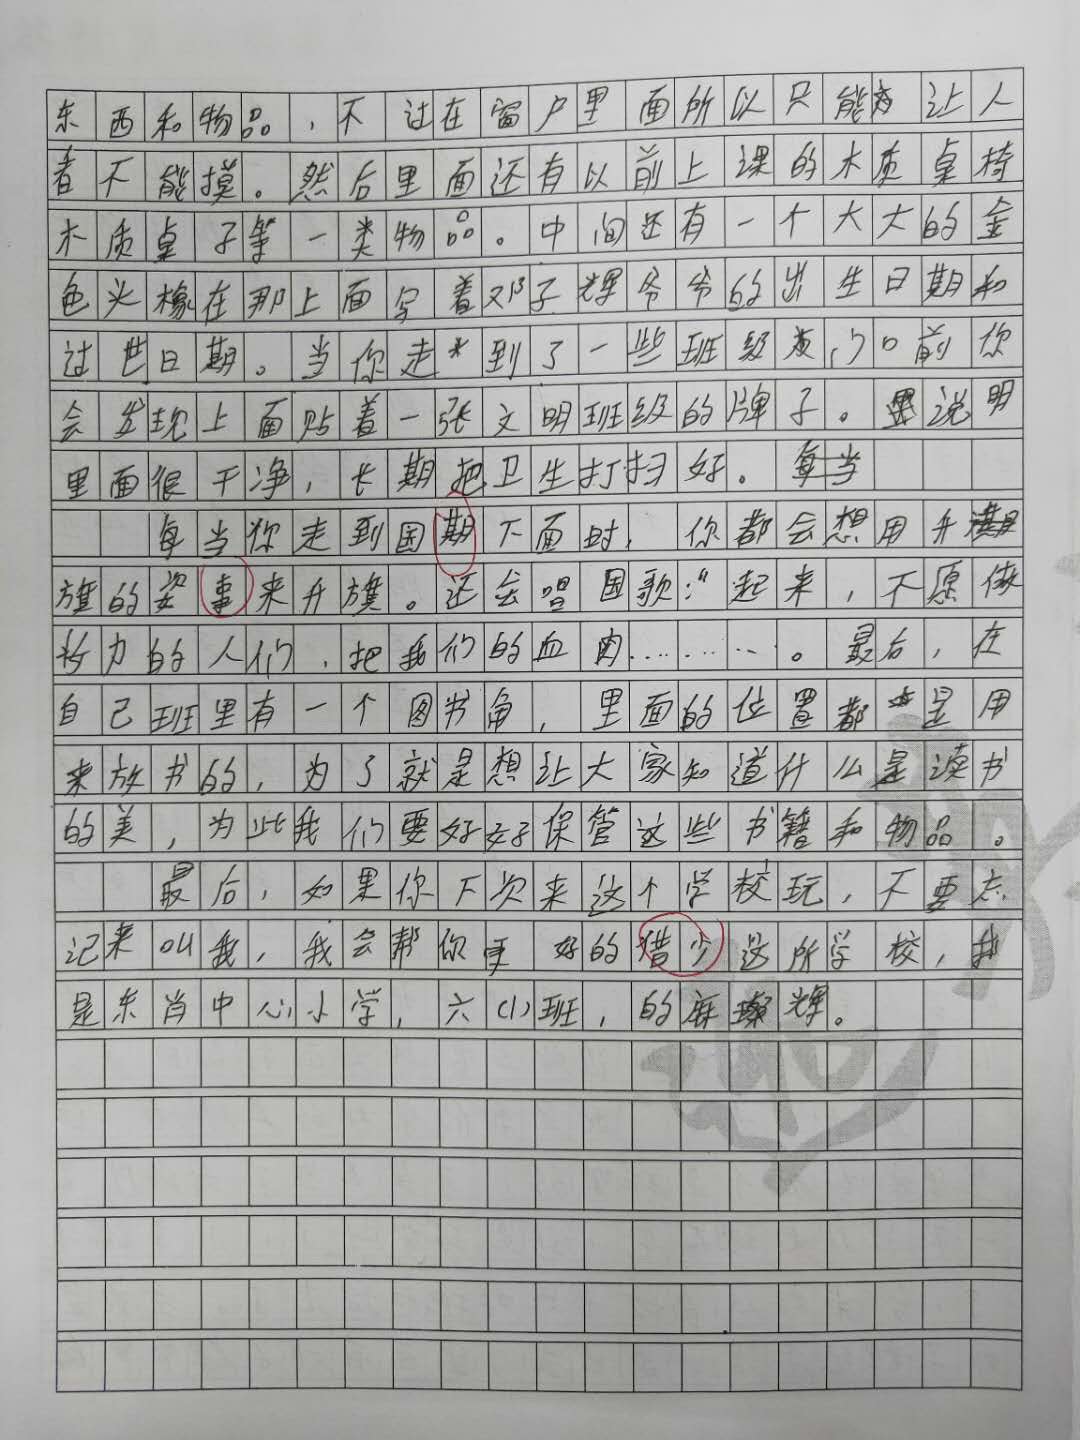 东西和物品,不过在窗户里面所以只能让人
看不能摸。然后里面还有以前上课的木质桌椅
木质桌子等一类物品。中间还有一个大大的金
色头橡在那上面写着邓子辉爷爷的出生日期和
过世日期。当你走到了一些班级门口前你
会发现上面贴着一张文明班级的牌子。说明
里面很干净,长期把卫生打扫好。每当
每当你走到国期下面时,你都会想用升
旗的姿事来升旗。还会唱国歌:“起来,不愿做
奴力的人们,把我们的血肉………。最后,在
自己班里有一个图书角,里面的位置都是用
来放书的,为了就是想让大家知道什么是读书
的美,为此我们要好好保管这些书籍和物品。
最后,如果你下次来这个学校玩,不要忘
记来叫我,我会帮你更好的借少这所学校,我
是东肖中心小学,六(1)班,的麻璨辉。